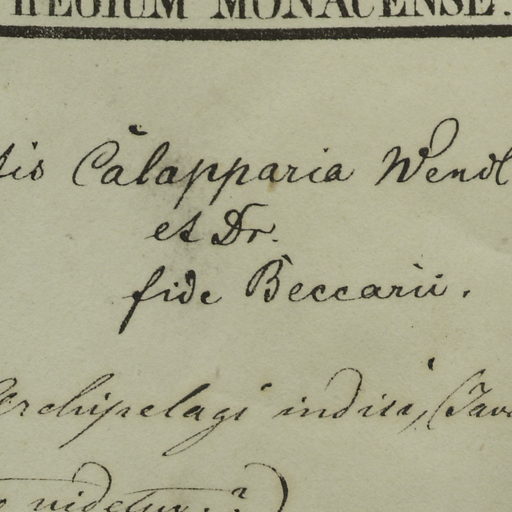 REGIUM MONACENSE.
tis Calapparia Wendl
et Dr.
fide Beccarii.
Archipelagi indici, (Java
videtur.?)